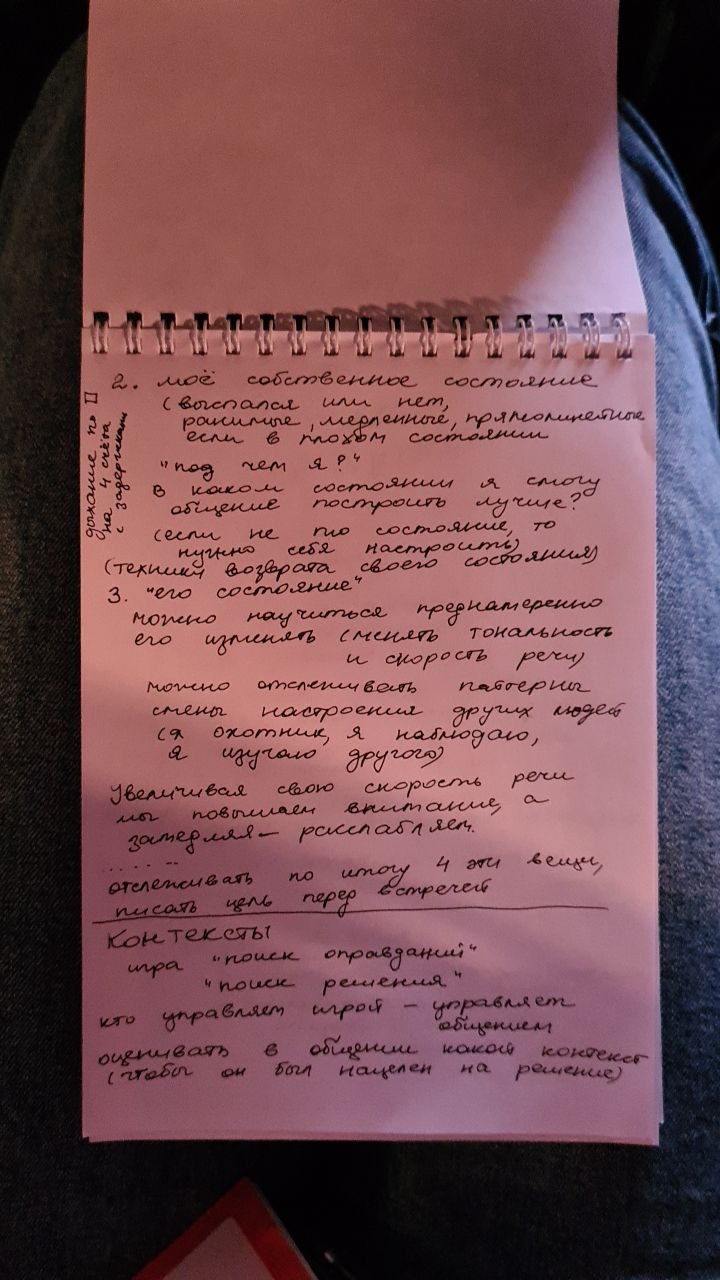 2. моё собственное состояние
(выспался или нет,
ранимые, медленные, прямолинейные
если в плохом состоянии
"под чем я?"
в каком состоянии я смогу
общение построить лучше?
(если не то состояние, то
нужно себя настроить)
(техники возврата своего состояния)
дыхание по □
на 4 счёта
с задержками
3. "его состояние"
можно научиться преднамеренно
его изменять (менять тональность
и скорость речи)
можно отслеживать паттерны
смены настроения других людей
(я охотник, я наблюдаю,
я изучаю другого)
Увеличивая свою скорость речи
мы повышаем внимание, а
замедляя — расслабляем.
отслеживать по итогу 4 эти вещи,
писать цель перед встречей
Контексты
игра "поиск оправданий"
"поиск решения"
кто управляет игрой — управляет
общением
оценивать в общении какой контекст
(чтобы он был нацелен на решение)